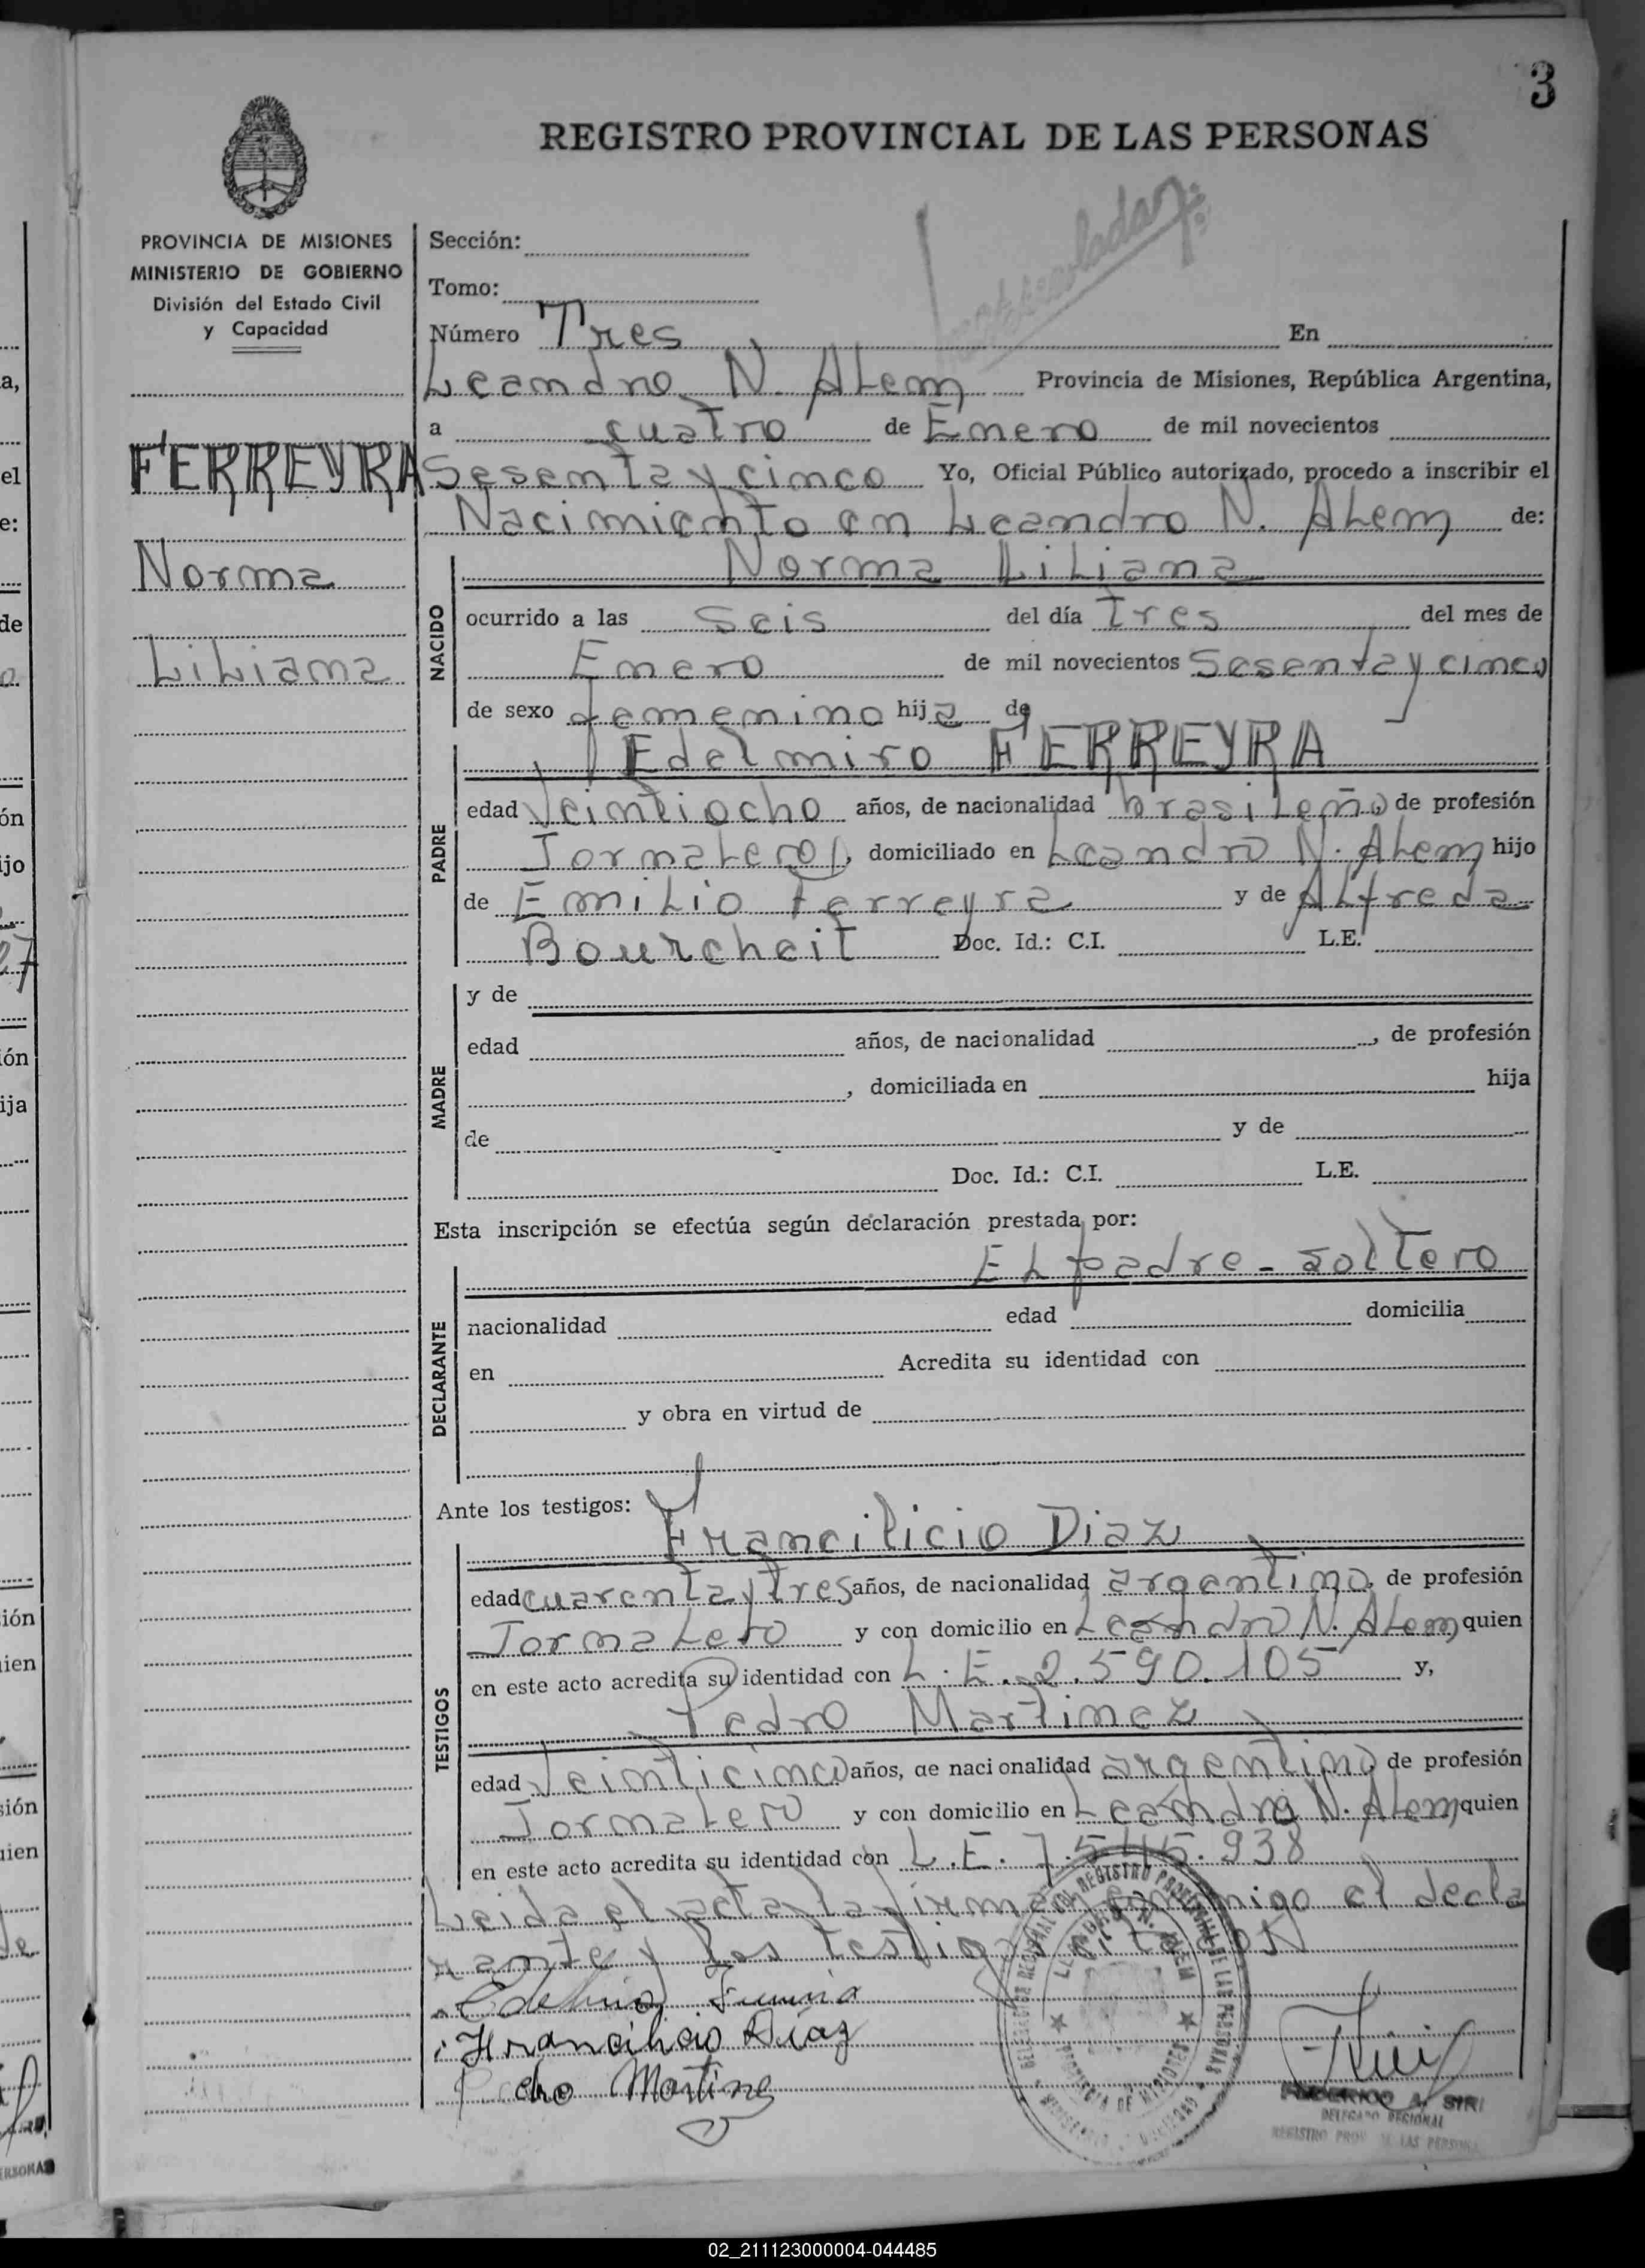 3
REGISTRO PROVINCIAL DE LAS PERSONAS
PROVINCIA DE MISIONES
MINISTERIO DE GOBIERNO
División del Estado Civil
y Capacidad
FERREYRA
Norma
Liliana
Sección:
Tomo:
Número Tres En
Leandro N. Alem Provincia de Misiones, República Argentina,
a cuatro de Enero de mil novecientos
Sesenta y cinco Yo, Oficial Público autorizado, procedo a inscribir el
Nacimiento en Leandro N. Alem de:
NACIDO
Norma Liliana
ocurrido a las Seis del día tres del mes de
Enero de mil novecientos Sesenta y cinco
de sexo femenino hija de
PADRE
Edelmiro FERREYRA
edad Veintiocho años, de nacionalidad brasileño, de profesión
Jornalero, domiciliado en Leandro N. Alem hijo
de Emilio Ferreyra y de Alfreda
Bourcheit Doc. Id.: C.I. L.E.
MADRE
y de
edad años, de nacionalidad , de profesión
, domiciliada en hija
de y de
Doc. Id.: C.I. L.E.
Esta inscripción se efectúa según declaración prestada por:
DECLARANTE
El padre - soltero
nacionalidad edad domicilia
en Acredita su identidad con
y obra en virtud de
Ante los testigos:
TESTIGOS
Francilicio Diaz
edad cuarenta y tres años, de nacionalidad argentino, de profesión
Jornalero y con domicilio en Leandro N. Alem quien
en este acto acredita su identidad con L.E. 2.590.105 y,
Pedro Martinez
edad Veinticinco años, de nacionalidad argentino de profesión
Jornalero y con domicilio en Leandro N. Alem quien
en este acto acredita su identidad con L.E. 7.545.938
Leida el acta la firman conmigo el decla
rante y los testigos
Francilicio Díaz
Pedro Martinez
LEANDRO N. ALEM
PROVINCIA DE MISIONES
FEDERICO A. SIRI
DELEGADO REGIONAL
REGISTRO PROV. DE LAS PERSONAS
02_211123000004-044485